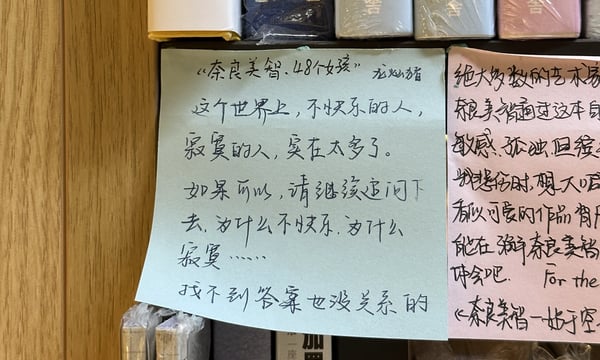 《奈良美智.48个女孩》
这个世界上，不快乐的人，
寂寞的人，实在太多了。
如果可以，请继续追问下
去，为什么不快乐，为什么
寂寞……
找不到答案也没关系的
绝大多数的艺术家
奈良美智通过这本自
敏感、孤独，但
悲伤时，想大
看似可爱的作品背后
能在 奈良美智
吧． For the
《奈良美智—站于空